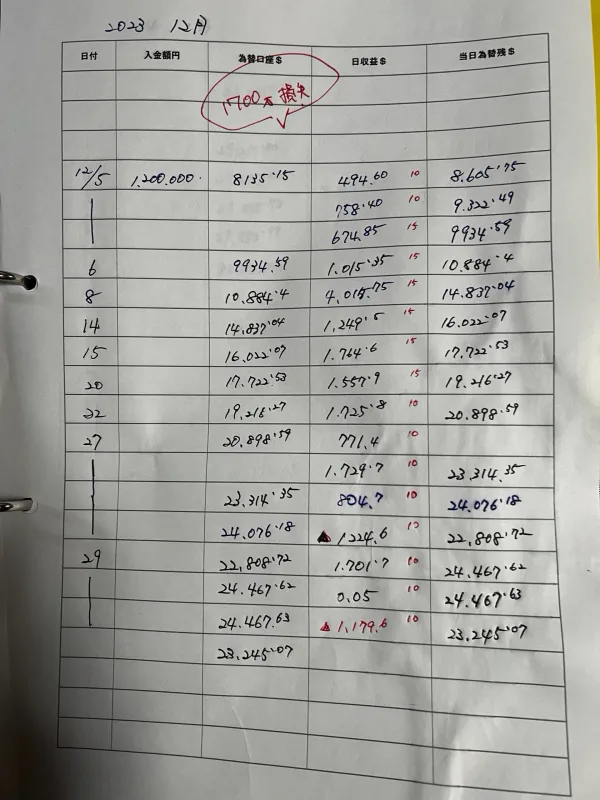 2023 12月
日付 入金額円 為替口座$ 日収益$ 当日為替残$
1700万 損失
12/5 1,200.000. 8135.15 494.60 10 8.605.75
758.40 10 9.322.49
674.85 15 9934.59
6 9934.59 1.015.35 15 10.884.4
8 10.884.4 4.015.75 15 14.837.04
14 14.837.04 1,249.5 15 16.022.07
15 16.022.07 1.764.6 15 17.722.53
20 17.722.53 1.557.9 15 19.216.27
22 19.216.27 1.725.8 10 20.898.59
27 20.898.59 771.4 10
1.729.7 10 23.314.35
23.314.35 804.7 10 24.076.18
24.076.18 ▲1224.6 10 22,808.72
29 22,808.72 1.701.7 10 24.467.62
24.467.62 0.05 10 24.467.63
24.467.63 ▲1,179.6 10 23.245.07
23.245.07